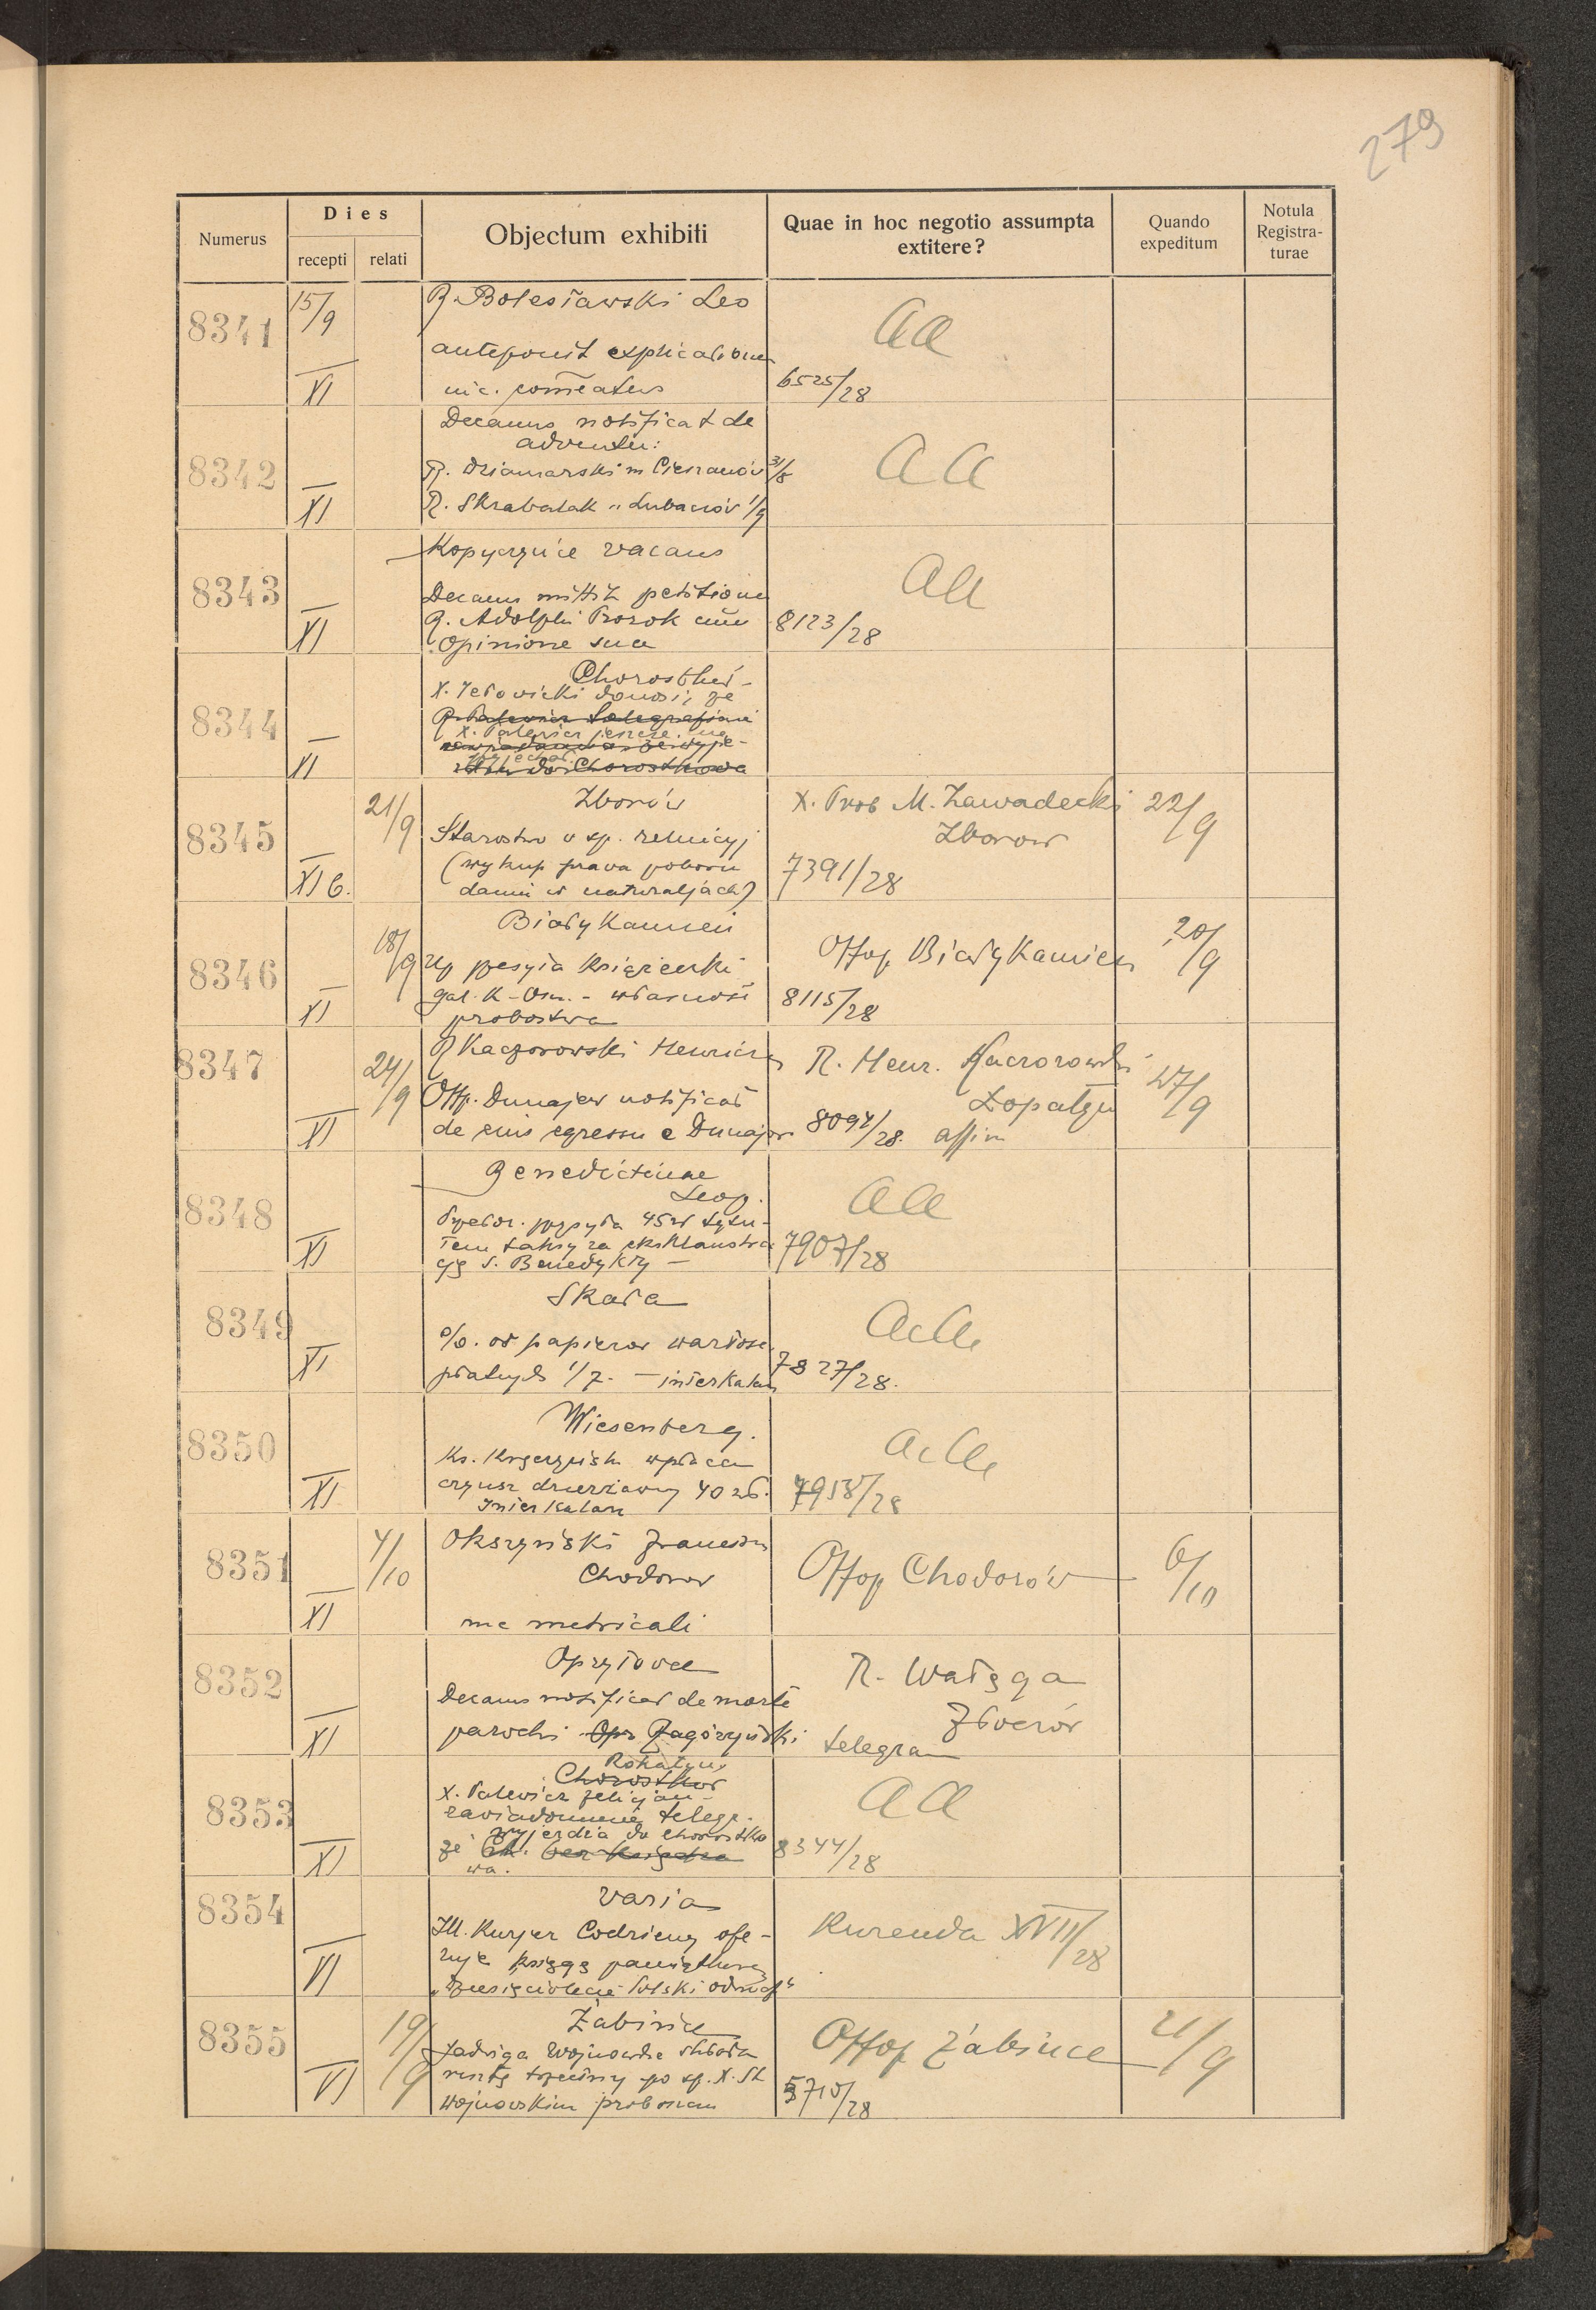 279
Numerus
Dies
recepti relati
Objectum exhibiti
Quae in hoc negotio assumpta
extitere?
Quando
expeditum
Notula
Registra-
turae
8341
15/9
XI
R. Bolesławski Leo
anteponit explicationem
nic. comeatus
aa
6525/28
8342
XI
Decanus notificat de
adventu:
R. Dziamarski in Cieszanów 31/8
R. Skrabalak " Lubaczów 1/9
aa
8343
XI
Kopyczyńce vacans
Decanus mittit petitionem
R. Adolphi Prorok cum
opinione sua
aa
8123/28
8344
XI
Chorostków
X. donosi, że
X. Palewicz jeszcze nie
8345
XI b.
21/9
Zborów
Starostwo v sp. relucyj
(wykup prawa poboru
danin w naturaljach)
X. Prob M. Zawadecki
Zborow
7391/28
22/9
8346
XI
18/9
Biały Kamień
gal. K-Osz. - własność
probostwa
Offop Biały Kamień
8115/28
20/9
8347
XI
24/9
R Kaczorowski Henricus
Offp. Dunajew notificat
de eius egressu e Dunajow
R. Henr. Kaczorowski
Łopatyn
8094/28. affirm
27/9
8348
XI
Benedictinae
Leop.
45 zł tytu-
łem taksy za eksklaustra
cję S. Benedykty -
aa
7907/28
8349
XI
Skała
%. od papierow wartośc.
płatnych 1/7. - interkalar
Acta
7827/28.
8350
XI
Wiesenberg.
Ks. wpłaca
czynsz dzierżawny 40 zł.
Interkalare
Acta
7958/28
8351
XI
4/10
Okszyński Franciscus
Chodorow
me metricali
Offop Chodorów
6/10
8352
XI
Opryłowce
Decanus notificat de morte
parochi Zagórzyński
R. Wałęga
Złoczów
telegram
8353
XI
Rohatyn
Chorostków
X. Palewicz Felicjan -
zawiadomienie telegr.
wyjeżdża do Chorostko
że
wa.
aa
8344/28
8354
VI
Varia
Ill. Kurjer Codzienny ofe-
ruje księgę pamiątkową
„Dziesięciolecie Polski odrodz"
Kurenda XVIII/28
8355
VI
19/9
Żabińce
Jadwiga Wojnowska składa
resztę trzeciny po sp. X. St
Wojnowskim proboszczu
Offop Żabińce
5710/28
21/9